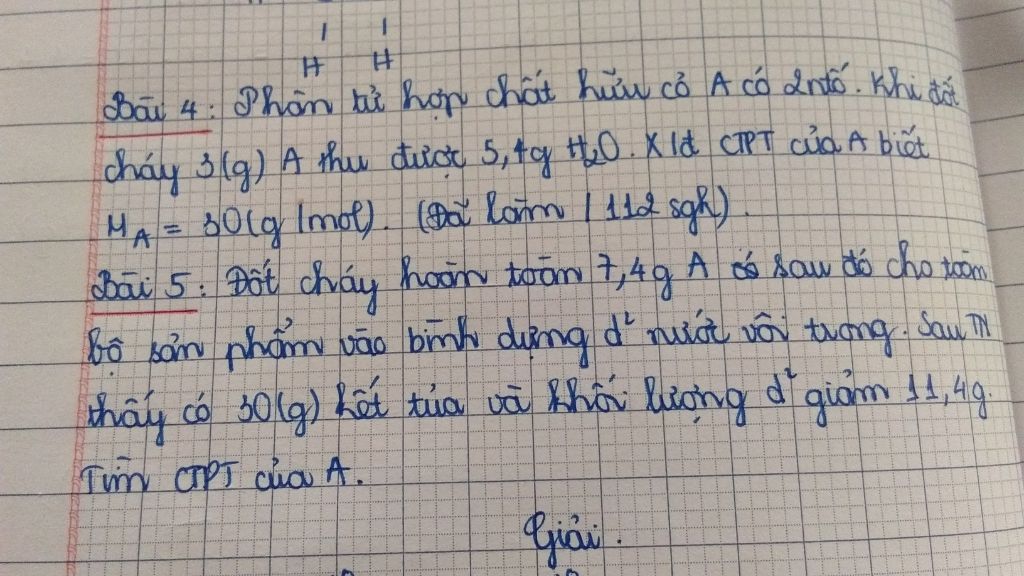 H H
Bài 4: Phân tử hợp chất hữu cơ A có 2 ntố. Khi đốt
cháy 3(g) A thu được 5,4g H₂O. Xđ CTPT của A biết
M_A = 30(g/mol). (Đã làm / 112 sgk).
Bài 5: Đốt cháy hoàn toàn 7,4g A sau đó cho toàn
bộ sản phẩm vào bình đựng d² nước vôi trong. Sau TN
thấy có 30(g) kết tủa và khối lượng d² giảm 11,4g.
Tìm CTPT của A.
Giải.